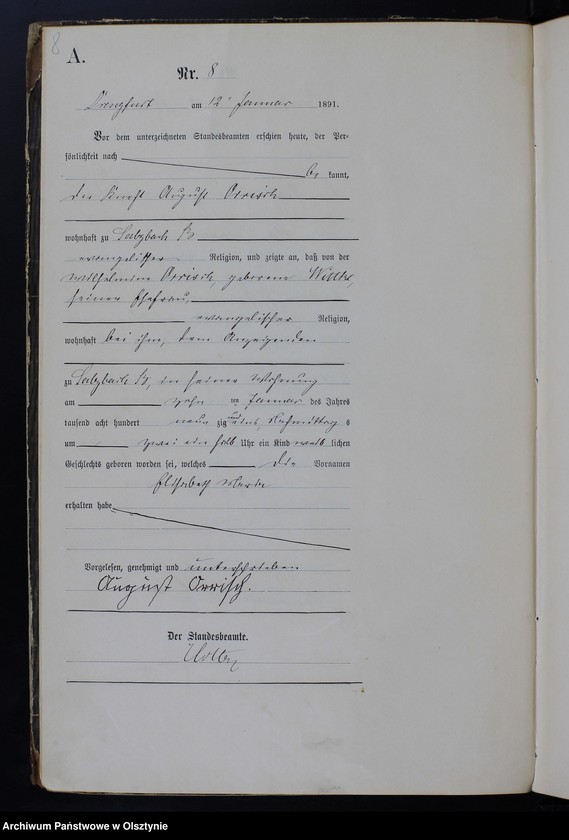 8
A.
Nr. 8
Drengfurt am 12. Januar 1891.
Vor dem unterzeichneten Standesbeamten erschien heute, der Per-
sönlichkeit nach be kannt,
der Knecht August Orrisch
wohnhaft zu Salzbach
evangelischer Religion, und zeigte an, daß von der
Wilhelmine Orrisch, geborene
seiner Ehefrau,
evangelischer Religion,
wohnhaft bei ihm, dem Anzeigenden
zu Salzbach in seiner Wohnung
am zehn ten Januar des Jahres
tausend acht hundert neun zig und eins, Nachmittag s
um zwei ein halb Uhr ein Kind weib lichen
Geschlechts geboren worden sei, welches die Vornamen
Elisabeth Maria
erhalten habe
Vorgelesen, genehmigt und unterschrieben
August Orrisch.
Der Standesbeamte.
Archiwum Państwowe w Olsztynie